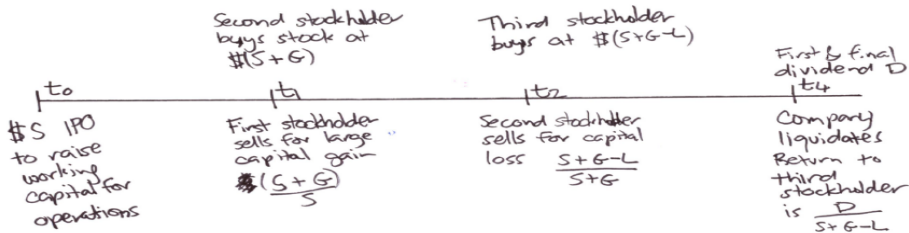 Second stockholder
buys stock at
$(S+G)
Third stockholder
buys at $(S+G-L)
First & final
dividend D
t0
t1
t2
t4
$S IPO
to raise
working
capital for
operations
First stockholder
sells for large
capital gain
(S+G)
S
Second stockholder
sells for capital
loss S+G-L
S+G
Company
liquidates
Return to
third
stockholder
is D
S+G-L